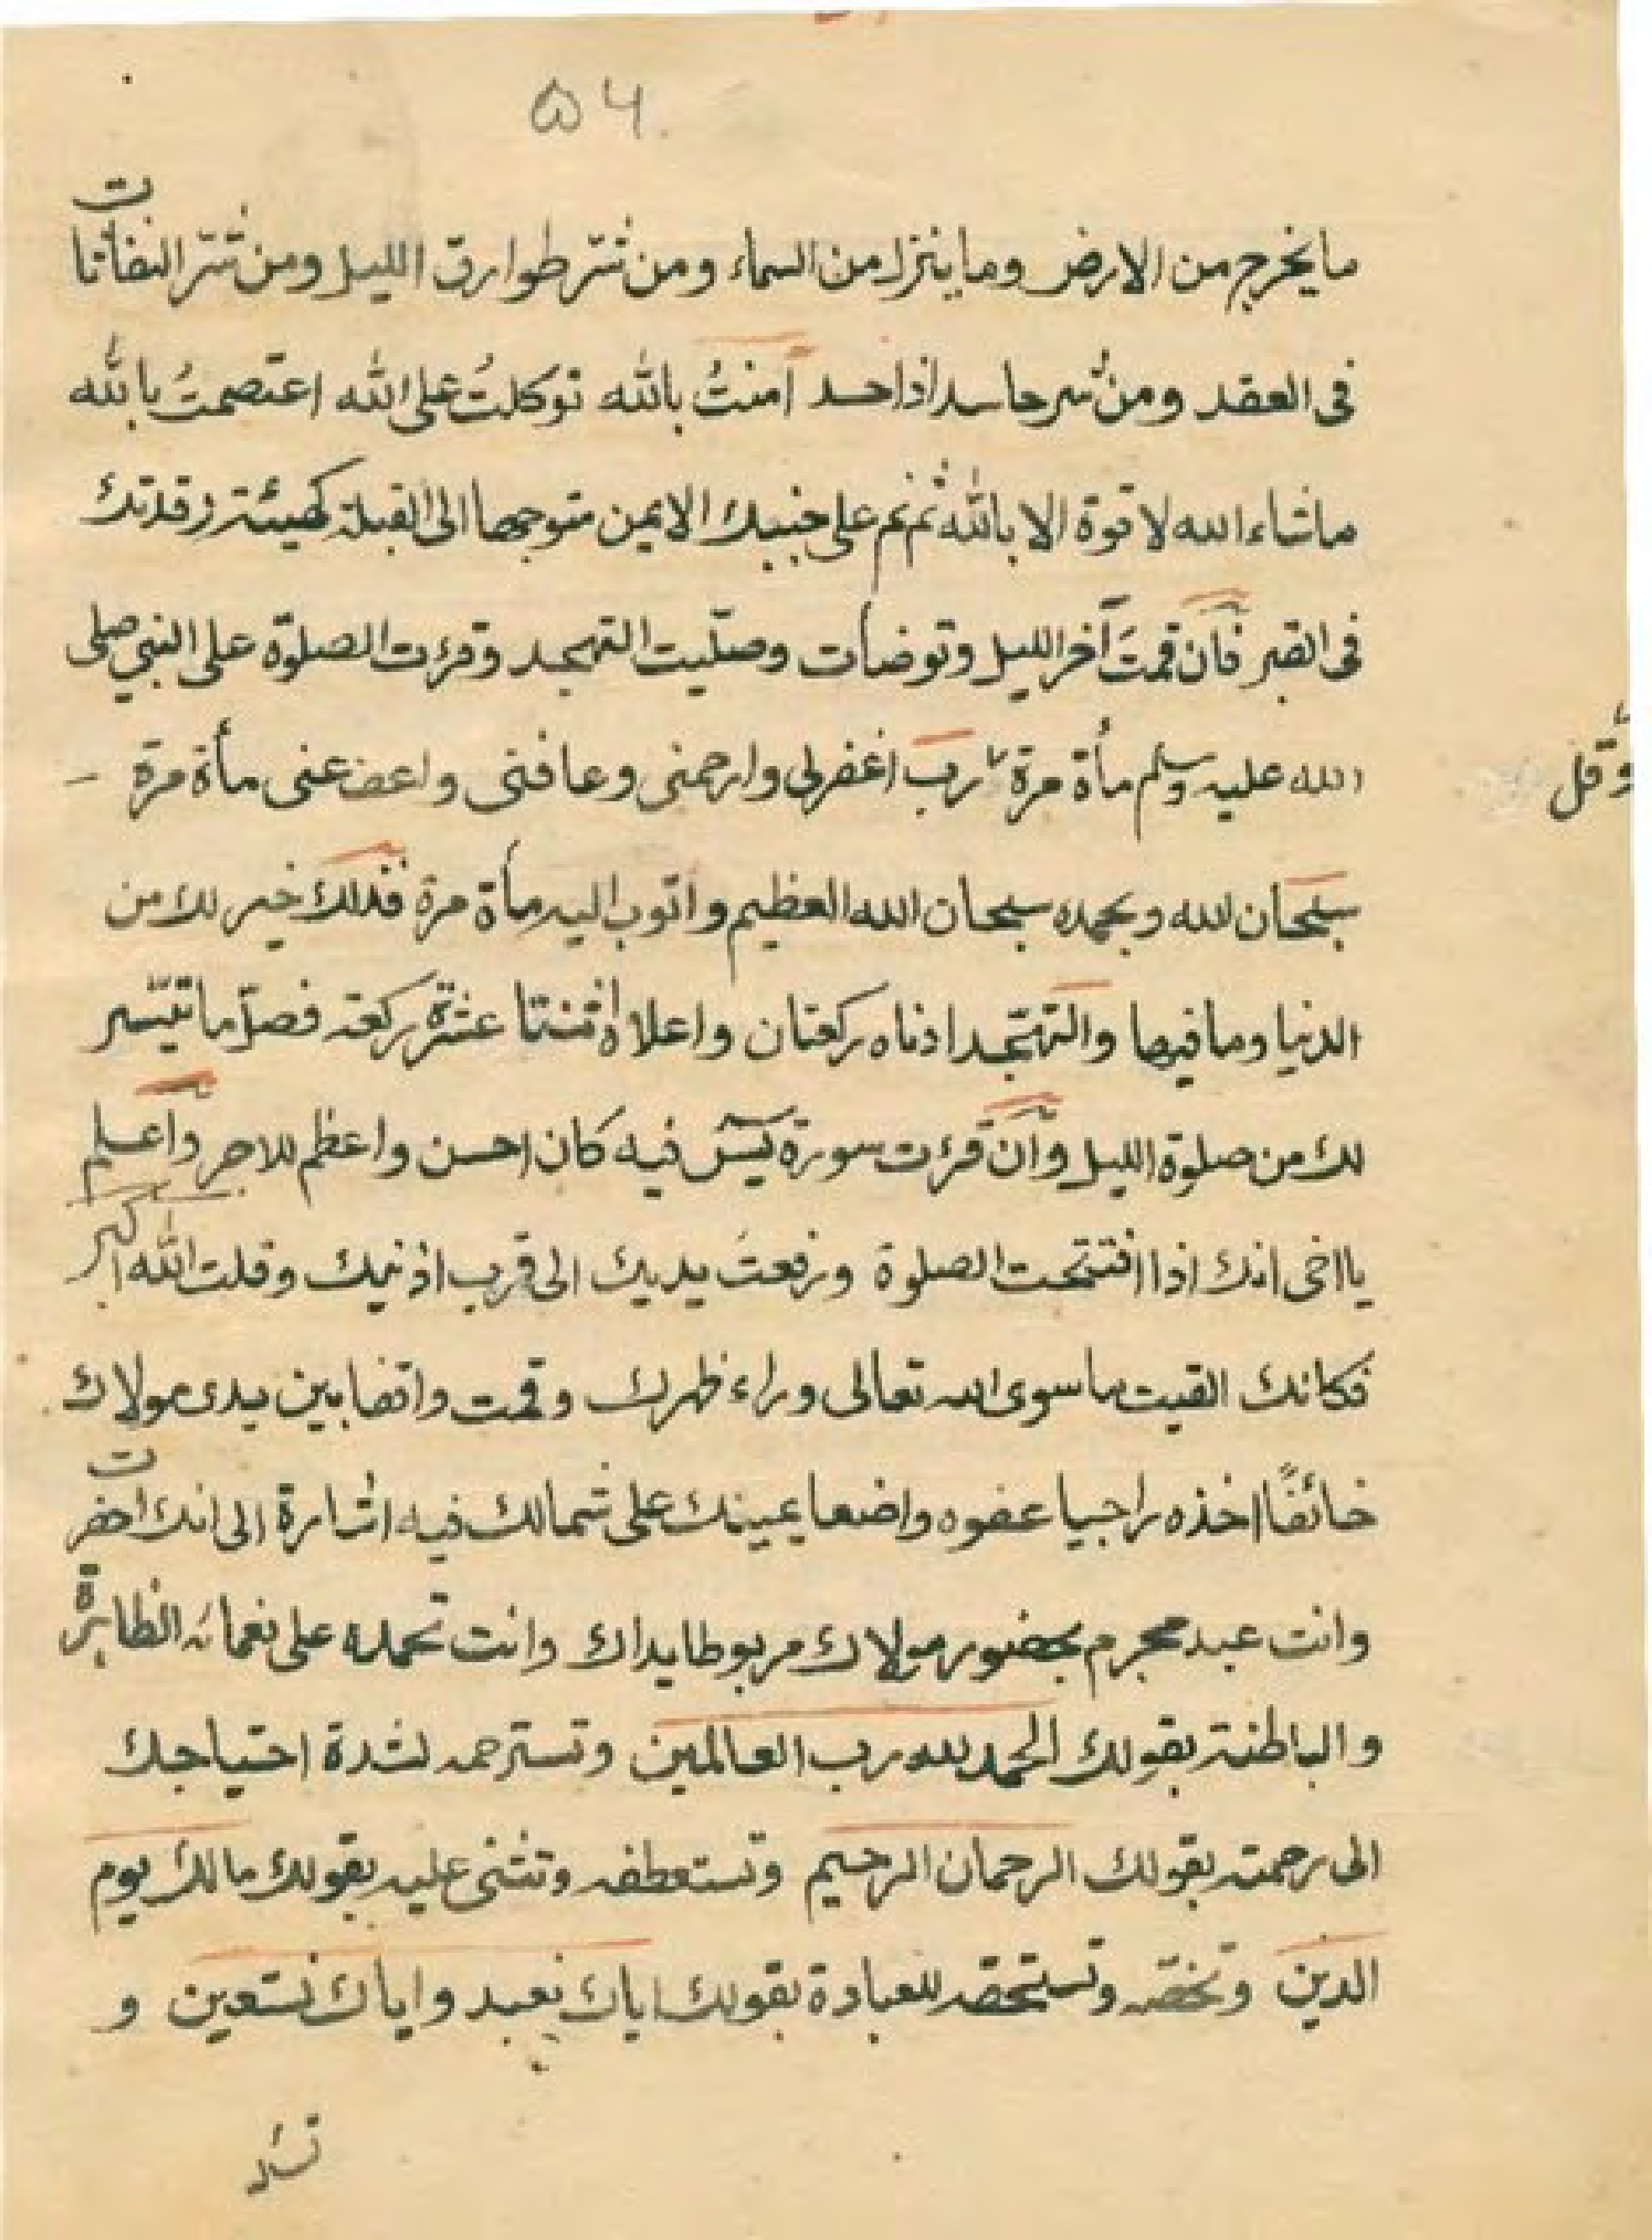 ٥٤
ما يخرج من الارض وما ينزل من السماء ومن شر طوارق الليل ومن شر النفاثات
فى العقد ومن شر حاسد اذا حسد آمنتُ بالله توكلتُ على الله اعتصمتُ بالله
ماشاء الله لا قوة الا بالله ثم نم على جنبك الايمن متوجها الى القبلة كهيئة رقدتك
فى القبر فان قمتَ آخر الليل وتوضأت وصليت التهجد وقرئت الصلوة على النبي صلى
الله عليه وسلم مأة مرة رب اغفرلى وارحمنى وعافنى واعف عنى مأة مرة
وقل
سبحان الله وبحمده سبحان الله العظيم واتوب اليه مأة مرة فذلك خير لك من
الدنيا وما فيها والتهجد ادناه ركعتان واعلاه اثنتا عشرة ركعة فصل ما تيسر
لك من صلوة الليل وان قرئت سورة يٓسٓ فيه كان احسن واعظم للاجر واعلم
يا اخى انك اذا افتتحت الصلوة ورفعتَ يديك الى قرب اذنيك وقلت الله اكبر
فكانك القيت ما سوى الله تعالى وراء ظهرك وقمت واقفا بين يدى مولاك
خائفًا اخذه راجيا عفوه واضعا يمينك على شمالك فيه اشارة الى انك
وانت عبد مجرم بحضور مولاك مربوطا يداك وانت تحمده على نعمائه الظاهرة
والباطنة بقولك الحمد لله رب العالمين وتسترحمه لشدة احتياجك
الى رحمته بقولك الرحمان الرحيم وتستعطفه وتثنى عليه بقولك مالك يوم
الدين وتخصه وتستحقه للعبادة بقولك اياك نعبد واياك نستعين و